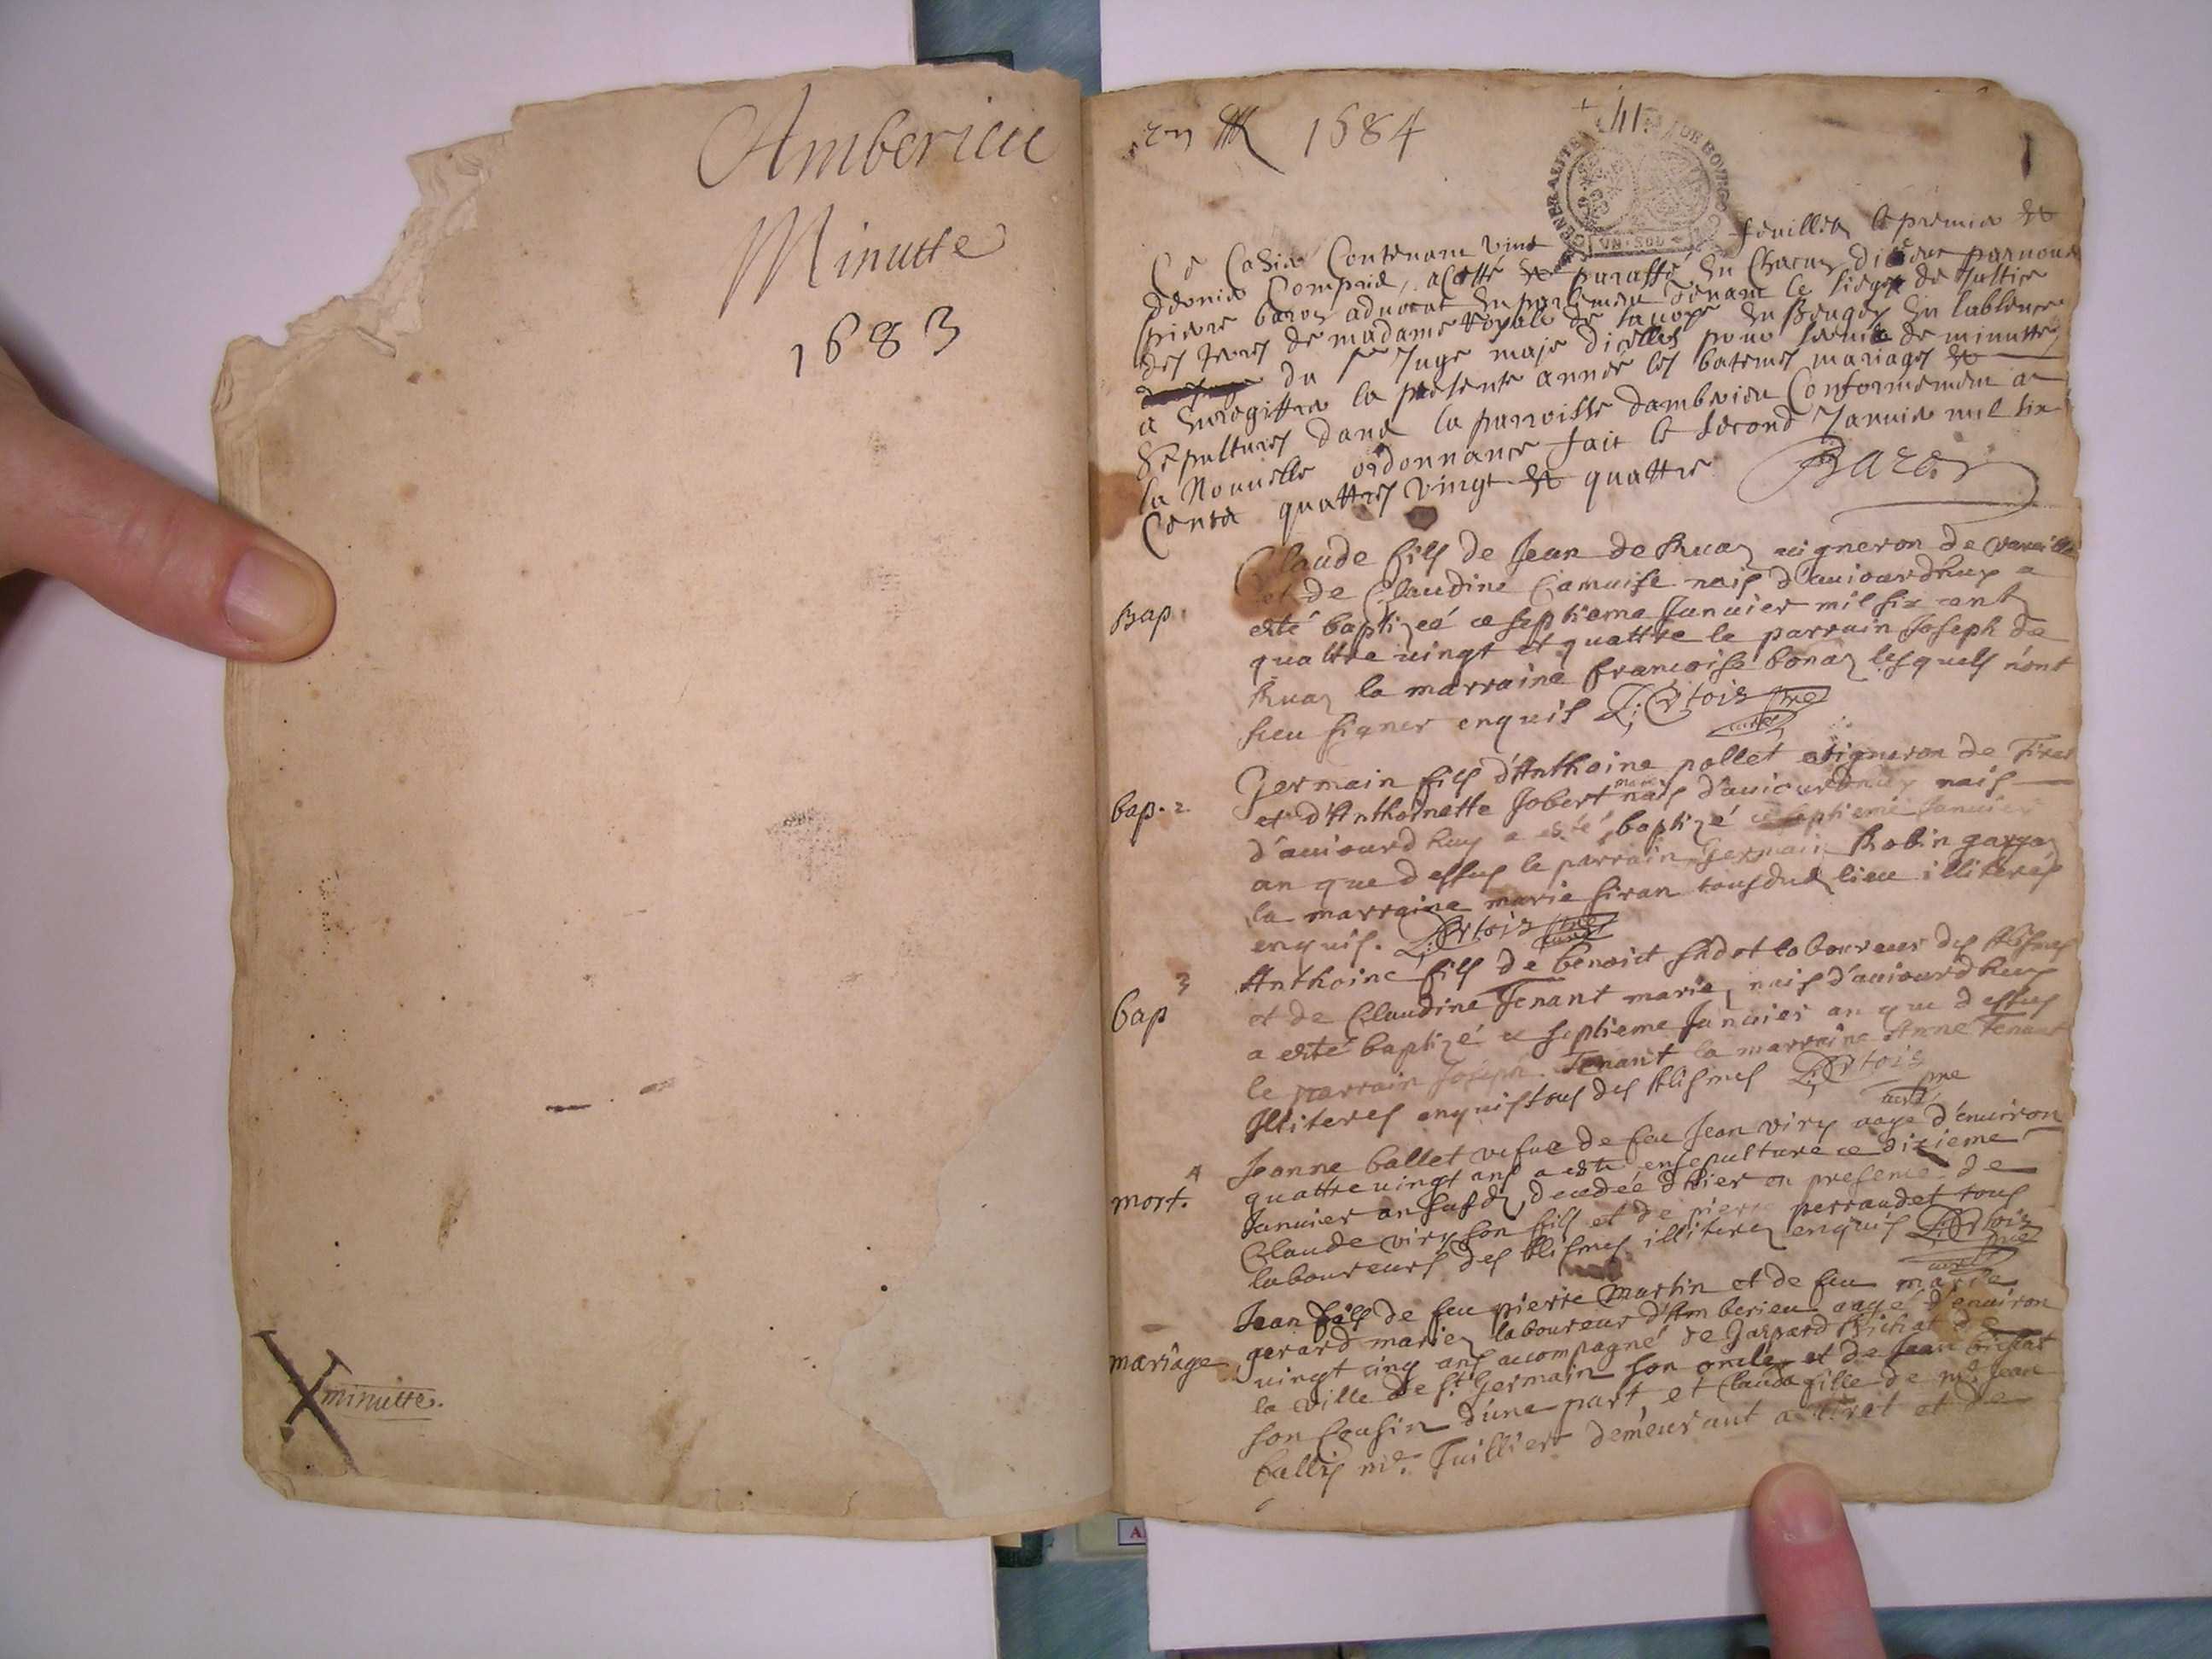 Amberieu
Minutte
1683
minutte.
1684
GENERALITE DE BOURGO
VN · SOL
Ce Cahier Contenant vint feuillets le premier et
dernier Compris, a esté et paraffé en chacun diceux par nous
pierre baron advocat en parlement tenant le siege de Justice
des terres de madame royale de sauoye en Beugey en labsence
du sr Juge maje dicelles pour servir de minutte
a enregistrer la presente année les batemes mariages et
sepultures dans la parroisse damberieu Conformement a
la Nouuelle ordonnance fait le second Januier mil six
Cents quattres vingt et quattre Baron
Bap.
Claude fils de Jean de Ruaz uigneron de
et de Claudine Camuise nais d'auiourdhuy a
esté baptizeé ce septieme Januier mil six cent
quattre uingt et quattre le parrain Joseph de
Ruaz la marraine francoise bonaz lesquels n'ont
sceu signer enquis
bap. 2
Germain fils d'Anthoine pollet uigneron de Tiret
et d'Anthoinette Jobert mariez nais d'auiourdhuy nais
d'auiourdhuy a esté baptizé ce septieme Januier
an que dessus le parrain Germain Robin garçon
la marraine marie siran tous dud lieu illiterés
enquis.
bap 3
Anthoine fils de benoict labour eur des
et de Claudine Tenant mariez nais d'auiourdhuy
a esté baptizé ce septieme Januier an que dessus
le parrain Joseph Tenant la marraine Anne tenant
Illiteres enquis tous des
mort. 4
Jeanne ballet vefue de feu Jean viry aage d'enuiron
quattre uingt ans a esté ensepulturé ce dixieme
Januier an susd, decedée dhier en presence de
Claude viry son fils et de pierre perraudet tous
laboureurs des illiterez enquis
mariage
Jean fils de feu pierre Martin et de feu marie
gerard mariez laboureur d'Amberieu aagé d'enuiron
uingt cinq ans accompagné de Gaspard Bichat de
la ville de st Germain son oncle, et de Jean bichat
son cousin d'une part, et Claude fille de me Jean
ballis me Tuillier demeurant a tiret et de